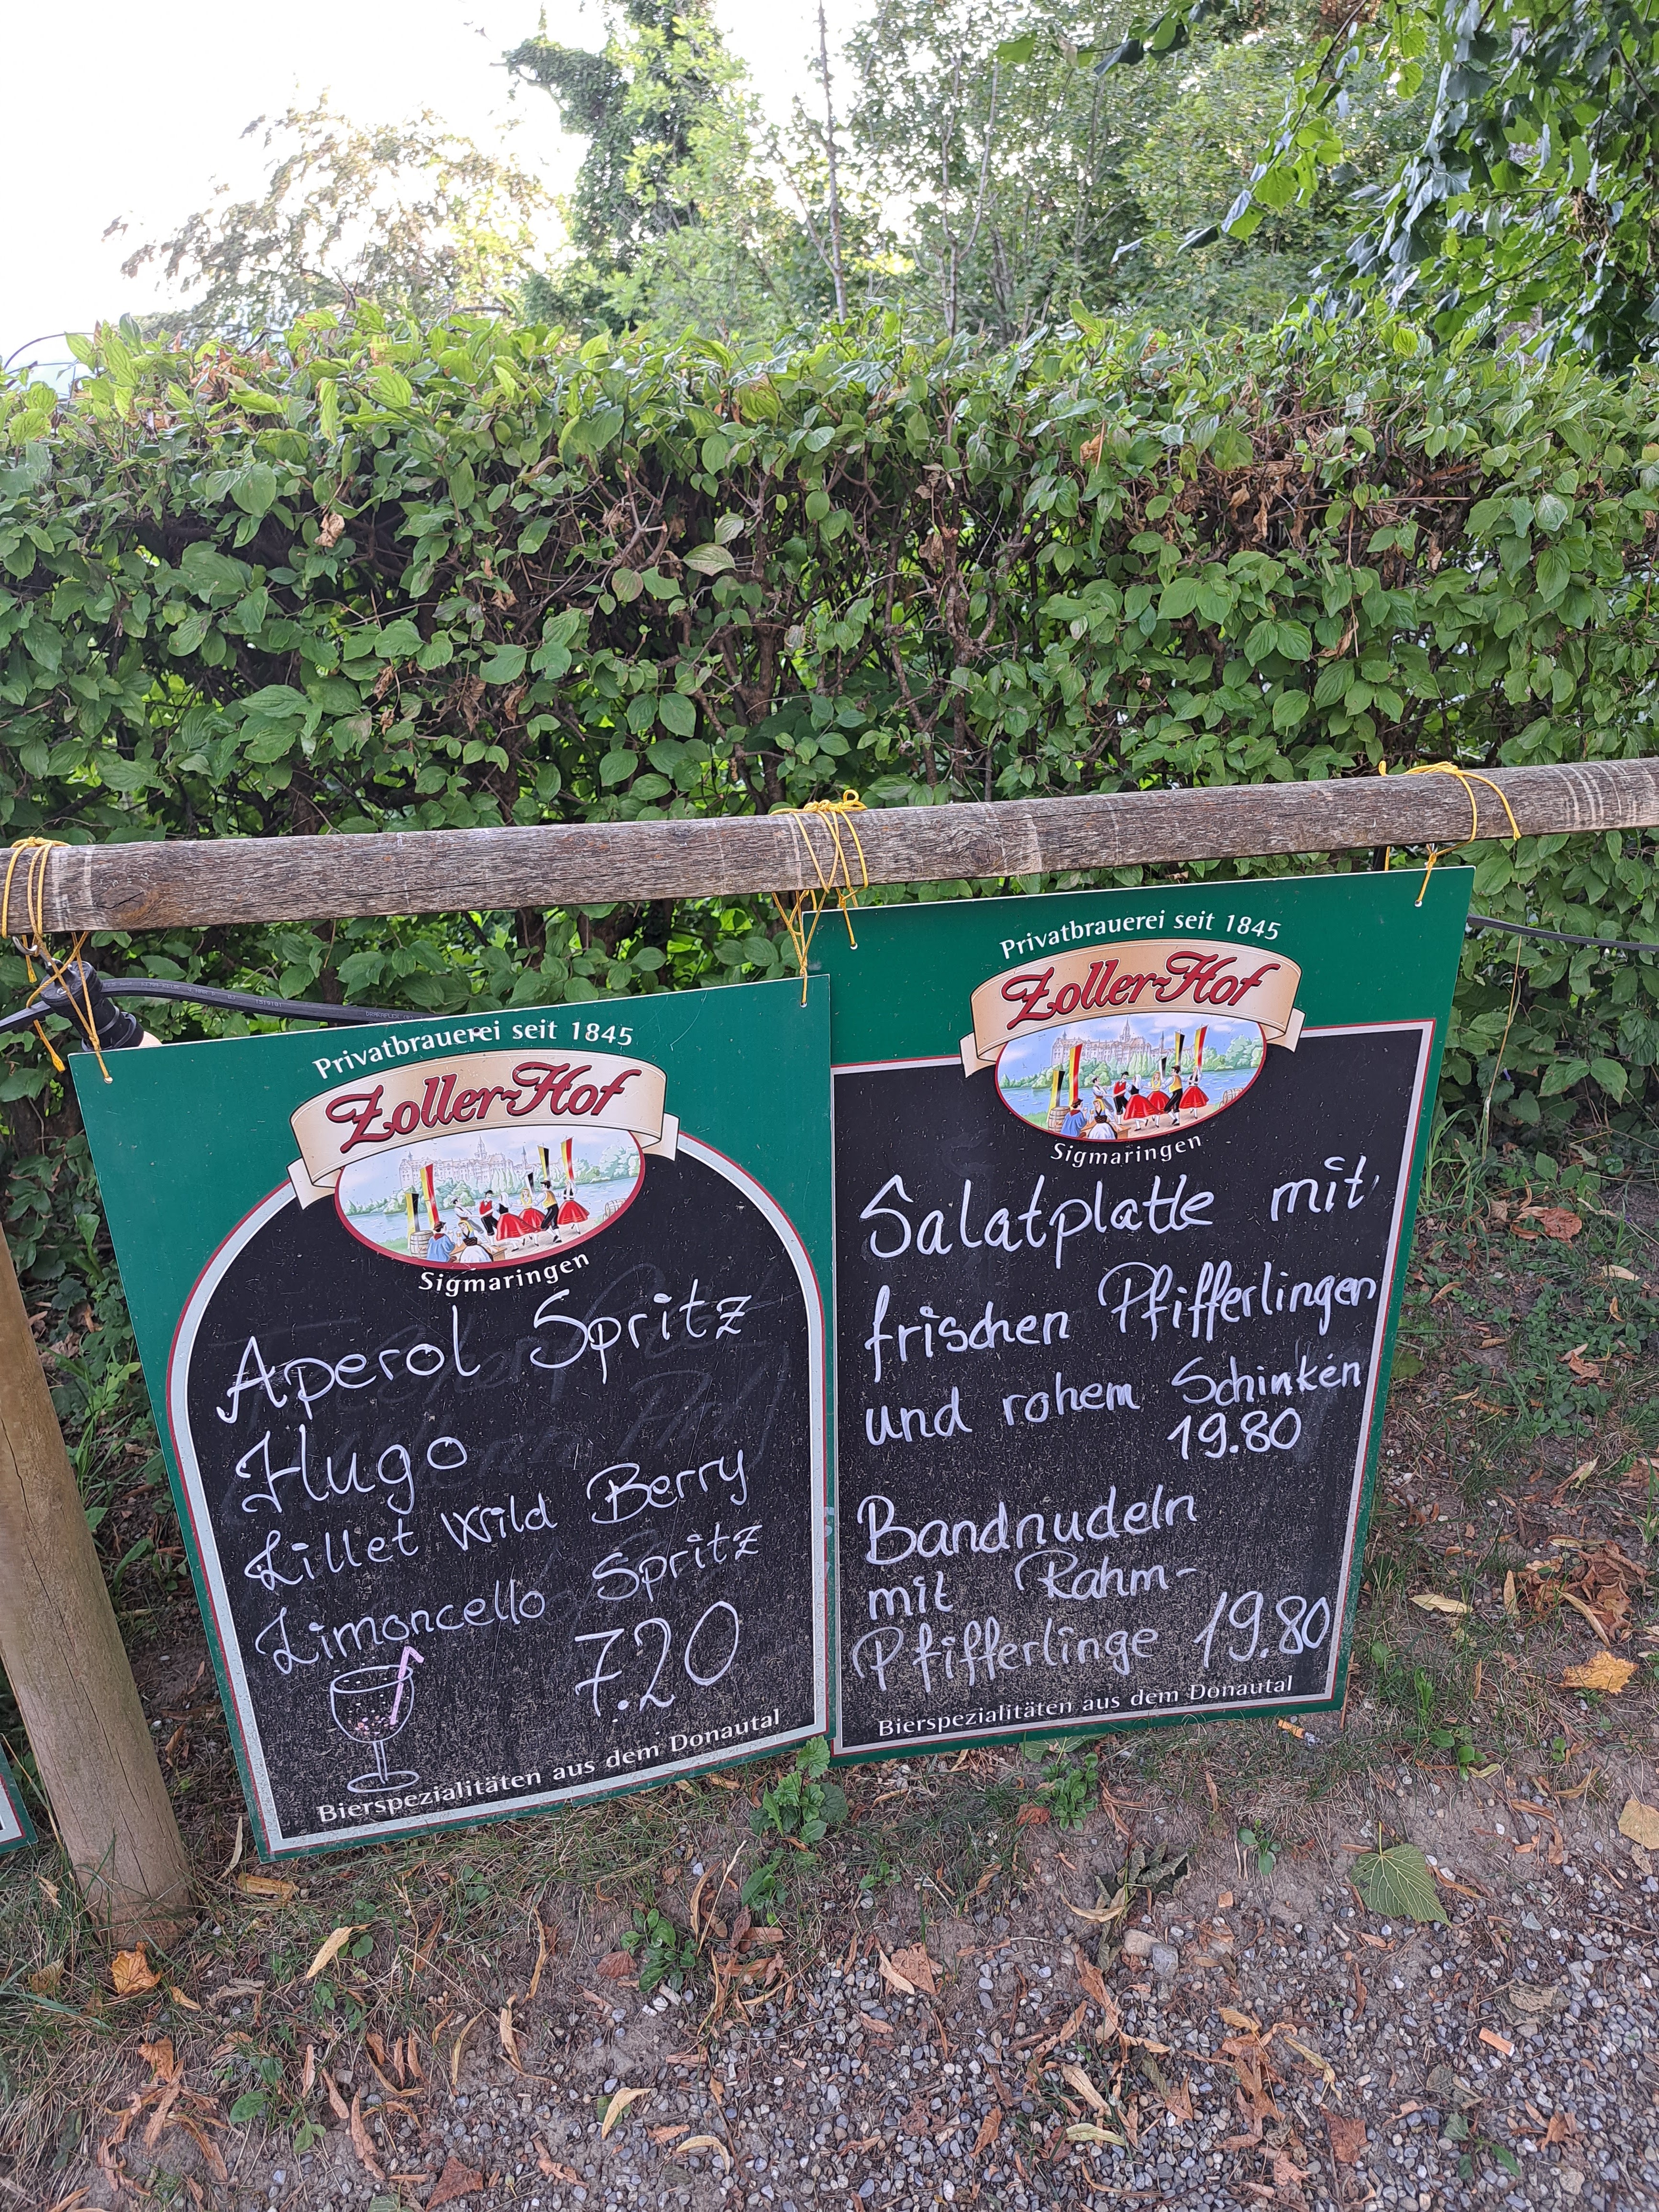 Privatbrauerei seit 1845
Zoller-Hof
Sigmaringen
Aperol Spritz
Hugo
Lillet Wild Berry
Limoncello Spritz
7.20
Bierspezialitäten aus dem Donautal
Privatbrauerei seit 1845
Zoller-Hof
Sigmaringen
Salatplatte mit
frischen Pfifferlingen
und rohem Schinken
19.80
Bandnudeln
mit Rahm-
Pfifferlinge 19.80
Bierspezialitäten aus dem Donautal